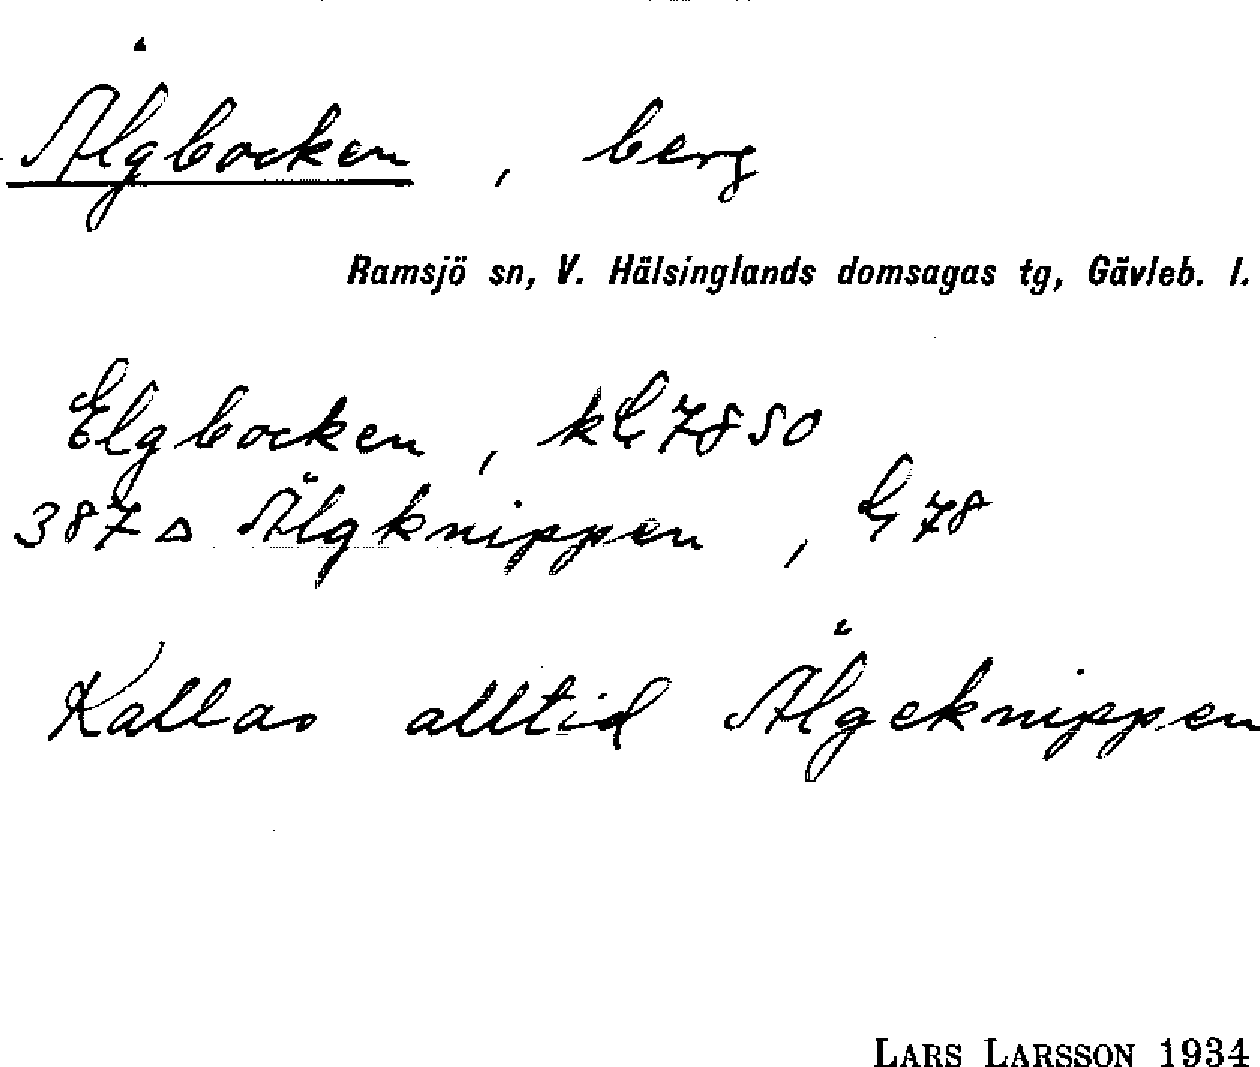 Älgbocken, berg
Ramsjö sn, V. Hälsinglands domsagas tg, Gävleb. l.
Elgbocken, k G 7850
387 △ Älgknippen, G 78
Kallas alltid Älgeknippen
LARS LARSSON 1934